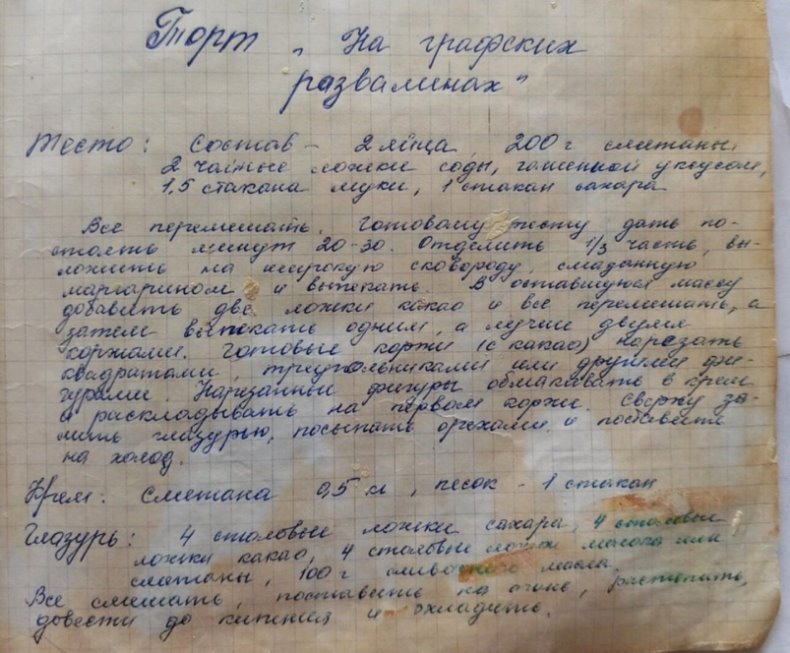 Торт „На графских
развалинах"
Тесто: Состав - 2 яйца, 200 г сметаны,
2 чайные ложки соды, гашенной уксусом,
1,5 стакана муки, 1 стакан сахара
Все перемешать. Готовому тесту дать по-
стоять минут 20-30. Отделить 1/3 часть, вы-
ложить на широкую сковороду, смазанную
маргарином и выпекать. В оставшуюся массу
добавить две ложки какао и все перемешать, а
затем выпекать одним, а лучше двумя
коржами. Готовые коржи (с какао) нарезать
квадратами, треугольниками или другими фи-
гурами. Нарезанные фигуры обмакивать в крем
и раскладывать на первом корже. Сверху за-
лить глазурью, посыпать орехами и поставить
на холод.
Крем: Сметана 0,5 л, песок - 1 стакан
Глазурь: 4 столовые ложки сахара, 4 столовые
ложки какао, 4 столовые ложки молока или
сметаны, 100 г сливочного масла.
Все смешать, поставить на огонь, растопить,
довести до кипения и охладить.